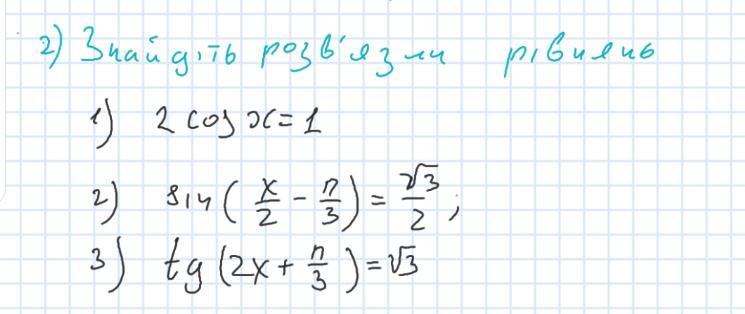 2) Знайдіть розв'язки рівнянь
1) 2 cos x = 1
2) sin(x/2 - π/3) = √3/2;
3) tg(2x + π/3) = √3